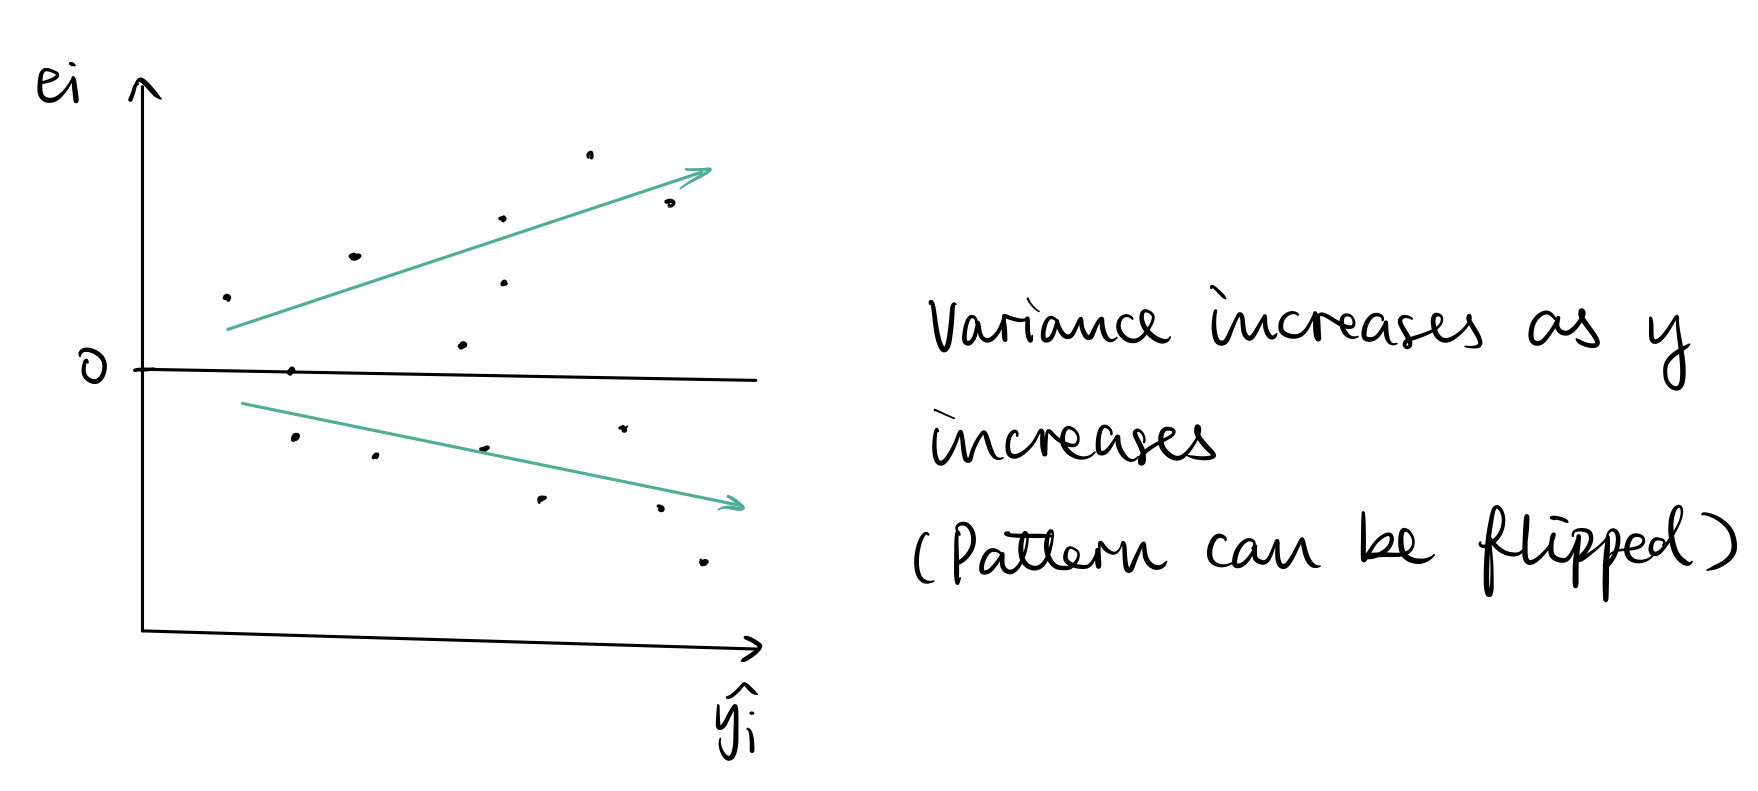 ei
0
ŷi
Variance increases as y
increases
(Pattern can be flipped)